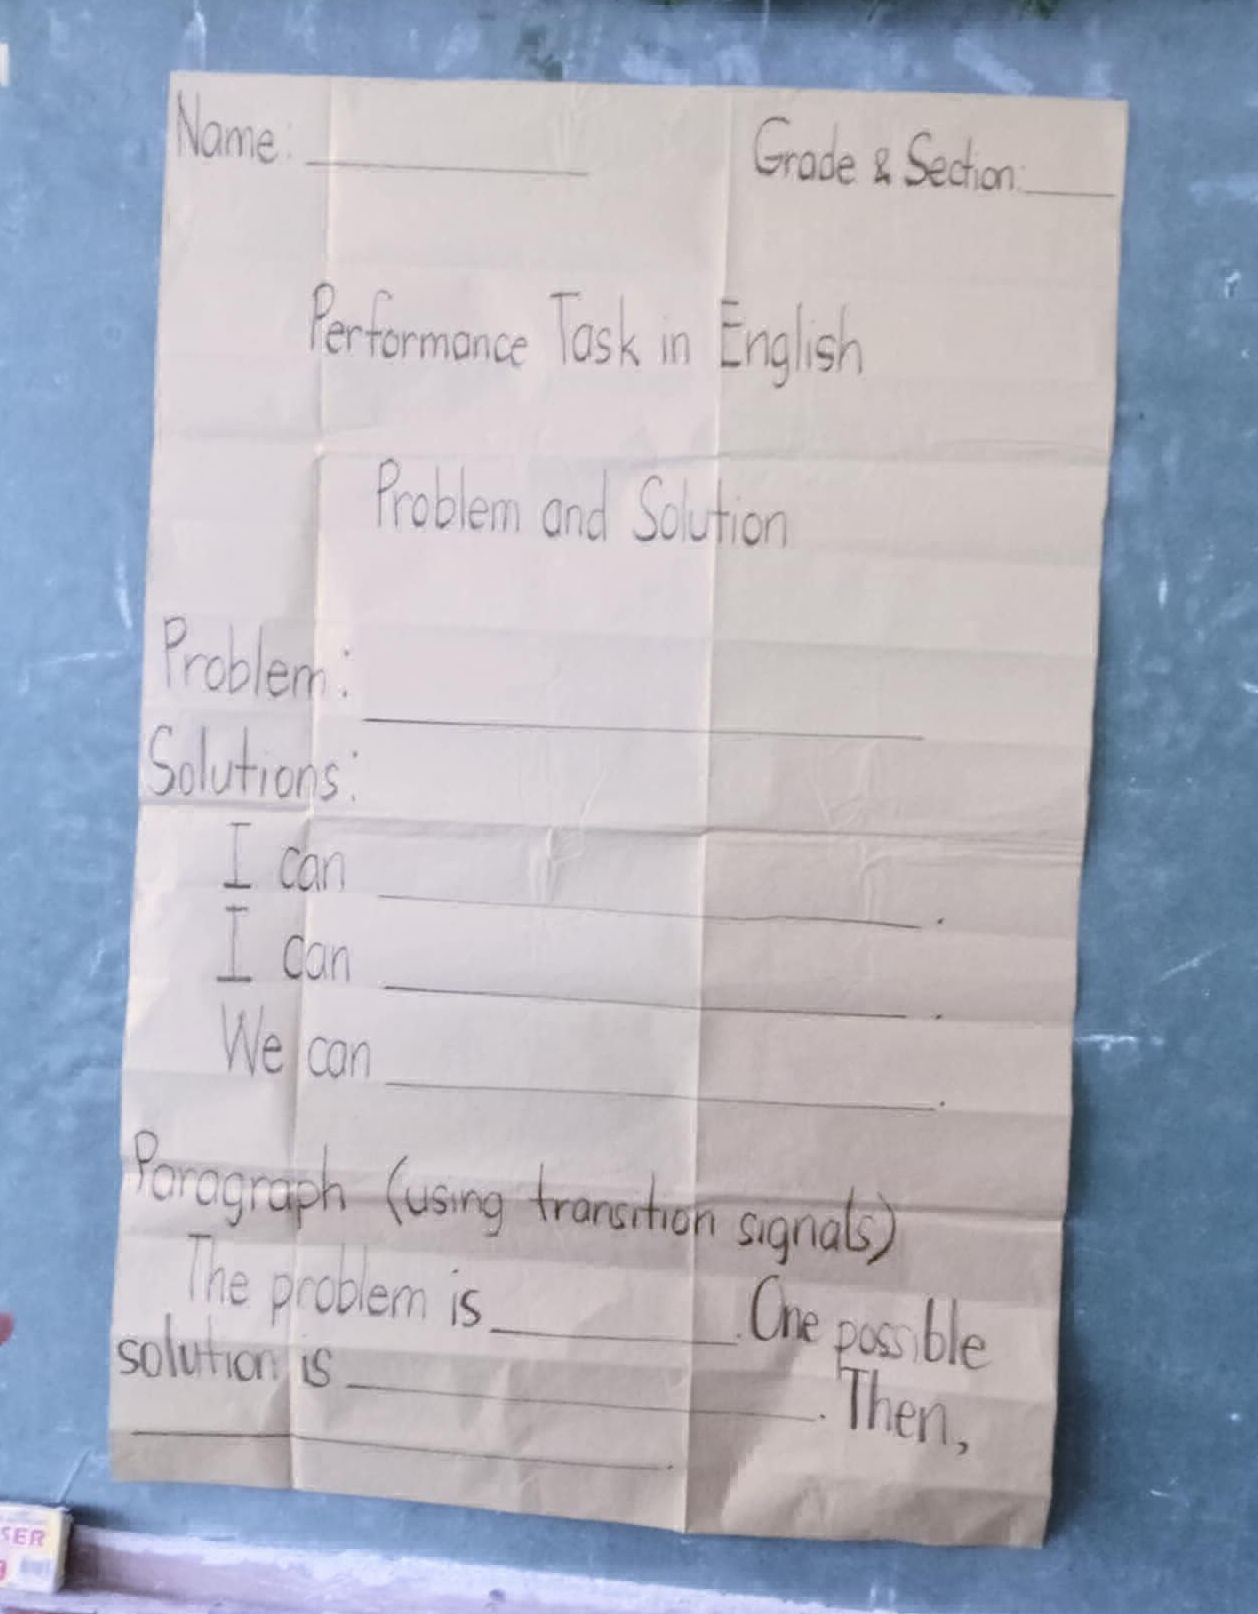 Name: ____________ Grade & Section: ____
Performance Task in English
Problem and Solution
Problem: ____________________
Solutions:
I can ____________________.
I can ____________________.
We can ____________________.
Paragraph (using transition signals)
The problem is __________. One possible
solution is ____________________. Then,
____________________.
SER